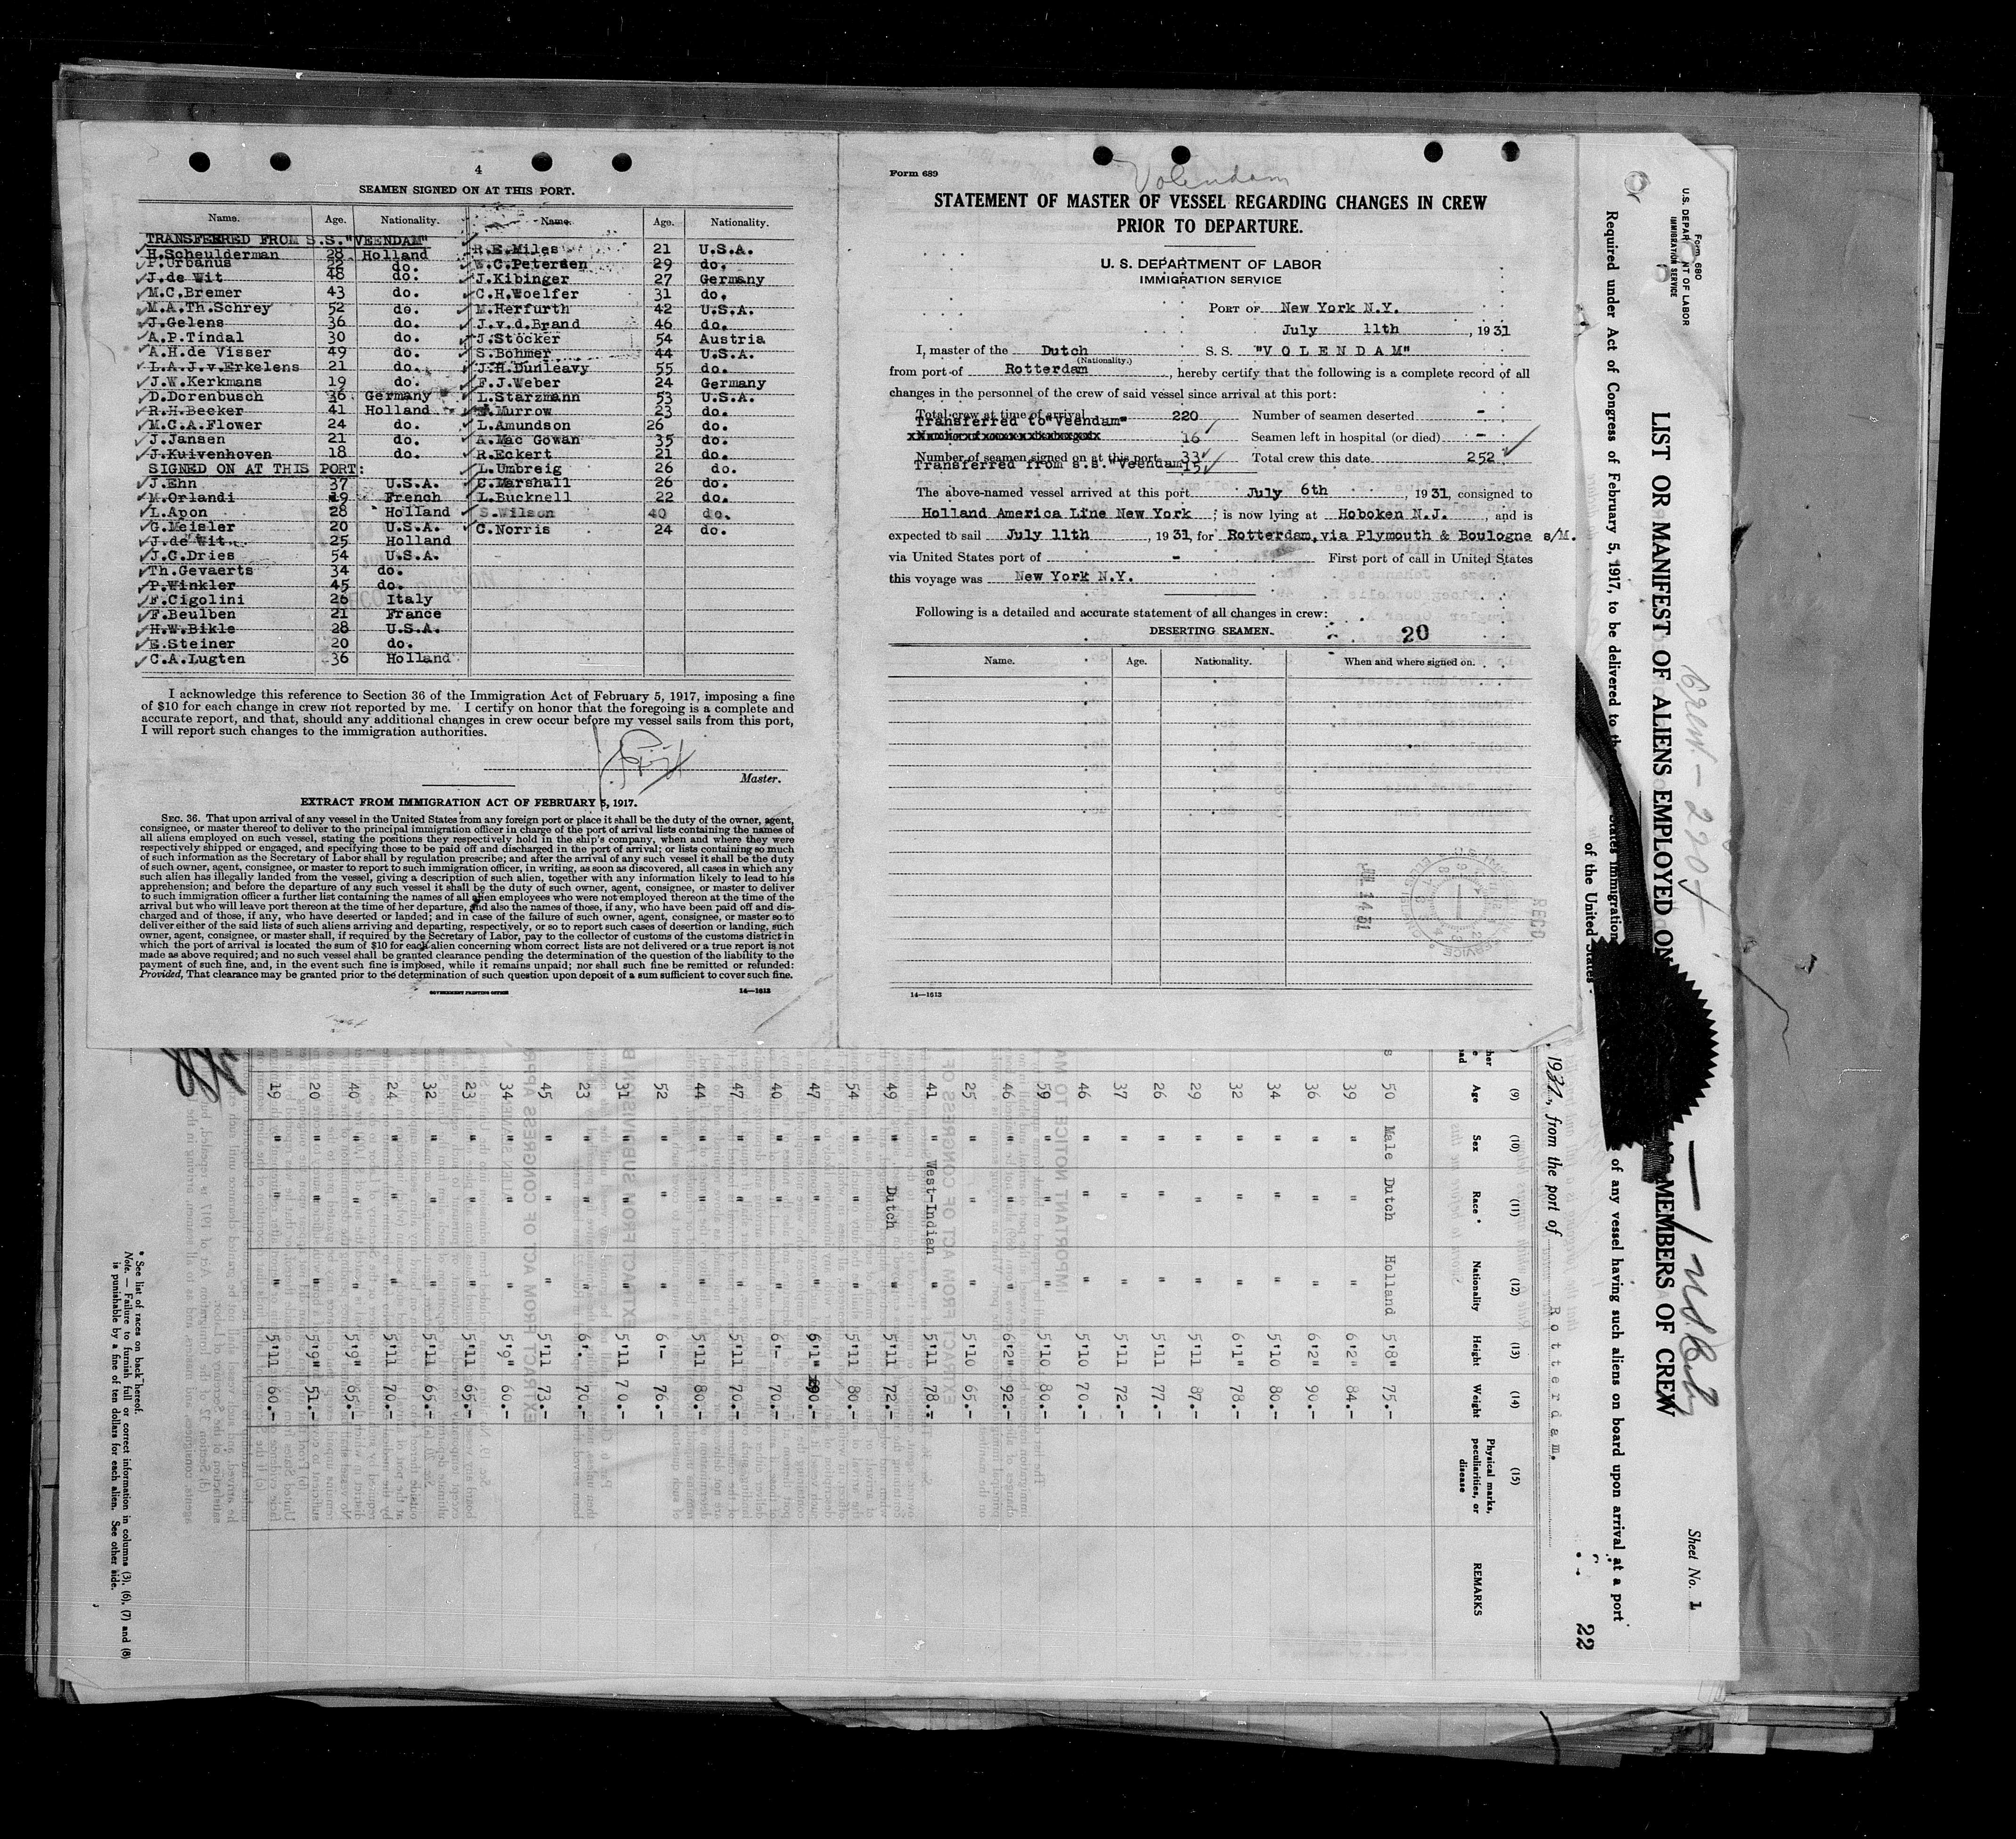 4
SEAMEN SIGNED ON AT THIS PORT.
Name. Age. Nationality. Name. Age. Nationality.
TRANSFERRED FROM S.S."VEENDAM"
H.Scheulderman 28 Holland
P.Urbanus do.
J.de Wit 48 do.
M.C.Bremer 43 do.
M.A.Th.Schrey 52 do.
J.Gelens 36 do.
A.P.Tindal 30 do.
A.H.de Visser 49 do.
L.A.J.v.Erkelens 21 do.
J.W.Kerkmans 19 do.
D.Dorenbusch 36 Germany
R.H.Becker 41 Holland
M.C.A.Flower 24 do.
J.Jansen 21 do.
J.Kuivenhoven 18 do.
SIGNED ON AT THIS PORT:
J.Ehn 37 U.S.A.
M.Orlandi 19 French
L.Apon 28 Holland
G.Meisler 20 U.S.A.
J.de Wit 25 Holland
J.C.Dries 54 U.S.A.
Th.Gevaerts 34 do.
P.Winkler 45 do.
F.Cigolini 26 Italy
F.Beulben 21 France
H.W.Bikle 28 U.S.A.
E.Steiner 20 do.
C.A.Lugten 36 Holland
R.E.Miles 21 U.S.A.
W.C.Petersen 29 do.
J.Kibinger 27 Germany
C.H.Woelfer 31 do.
M.Herfurth 42 U.S.A.
J.v.d.Brand 46 do.
J.Stöcker 54 Austria
S.Böhmer 44 U.S.A.
J.H.Dunleavy 55 do.
F.J.Weber 24 Germany
L.Starzmann 53 U.S.A.
Murrow 23 do.
L.Amundson 26 do.
A.Mac Gowan 35 do.
R.Eckert 21 do.
L.Umbreig 26 do.
C.Marshall 26 do.
L.Bucknell 22 do.
S.Wilson 40 do.
C.Norris 24 do.
I acknowledge this reference to Section 36 of the Immigration Act of February 5, 1917, imposing a fine
of $10 for each change in crew not reported by me. I certify on honor that the foregoing is a complete and
accurate report, and that, should any additional changes in crew occur before my vessel sails from this port,
I will report such changes to the immigration authorities.
Master.
EXTRACT FROM IMMIGRATION ACT OF FEBRUARY 5, 1917.
SEC. 36. That upon arrival of any vessel in the United States from any foreign port or place it shall be the duty of the owner, agent,
consignee, or master thereof to deliver to the principal immigration officer in charge of the port of arrival lists containing the names of
all aliens employed on such vessel, stating the positions they respectively hold in the ship's company, when and where they were
respectively shipped or engaged, and specifying those to be paid off and discharged in the port of arrival; or lists containing so much
of such information as the Secretary of Labor shall by regulation prescribe; and after the arrival of any such vessel it shall be the duty
of such owner, agent, consignee, or master to report to such immigration officer, in writing, as soon as discovered, all cases in which any
such alien has illegally landed from the vessel, giving a description of such alien, together with any information likely to lead to his
apprehension; and before the departure of any such vessel it shall be the duty of such owner, agent, consignee, or master to deliver
to such immigration officer a further list containing the names of all alien employees who were not employed thereon at the time of the
arrival but who will leave port thereon at the time of her departure, and also the names of those, if any, who have been paid off and dis-
charged and of those, if any, who have deserted or landed; and in case of the failure of such owner, agent, consignee, or master so to
deliver either of the said lists of such aliens arriving and departing, respectively, or so to report such cases of desertion or landing, such
owner, agent, consignee, or master shall, if required by the Secretary of Labor, pay to the collector of customs of the customs district in
which the port of arrival is located the sum of $10 for each alien concerning whom correct lists are not delivered or a true report is not
made as above required; and no such vessel shall be granted clearance pending the determination of the question of the liability to the
payment of such fine, and, in the event such fine is imposed, while it remains unpaid; nor shall such fine be remitted or refunded:
Provided, That clearance may be granted prior to the determination of such question upon deposit of a sum sufficient to cover such fine.
GOVERNMENT PRINTING OFFICE 14—1613
Form 689
Volendam
STATEMENT OF MASTER OF VESSEL REGARDING CHANGES IN CREW
PRIOR TO DEPARTURE.
U. S. DEPARTMENT OF LABOR
IMMIGRATION SERVICE
PORT OF New York N.Y.
July 11th, 1931
I, master of the Dutch S. S. "V O L E N D A M"
(Nationality.)
from port of Rotterdam, hereby certify that the following is a complete record of all
changes in the personnel of the crew of said vessel since arrival at this port:
Total crew at time of arrival 220 Number of seamen deserted -
Transferred to "Veendam"
16 Seamen left in hospital (or died) -
Number of seamen signed on at this port 33 Total crew this date 252
Transferred from s.s. "Veendam" 15
The above-named vessel arrived at this port July 6th, 1931, consigned to
Holland America Line New York; is now lying at Hoboken N.J., and is
expected to sail July 11th, 1931, for Rotterdam, via Plymouth & Boulogne s/M.
via United States port of - First port of call in United States
this voyage was New York N.Y.
Following is a detailed and accurate statement of all changes in crew:
DESERTING SEAMEN. 20
Name. Age. Nationality. When and where signed on.
14—1613
RECD
Form 680
U.S. DEPARTMENT OF LABOR
IMMIGRATION SERVICE
Sheet No. 1
LIST OR MANIFEST OF ALIENS EMPLOYED ON MEMBERS OF CREW
Required under Act of Congress of February 5, 1917, to be delivered to the
of any vessel having such aliens on board upon arrival at a port
of the United States
22
, 1931, from the port of Rotterdam.
(9) (10) (11) (12) (13) (14) (15)
Age Sex Race * Nationality Height Weight Physical marks, peculiarities, or disease REMARKS
50 Male Dutch Holland 5'8" 75.-
39 " " " 6'2" 84.-
36 " " " 6'2" 90.-
34 " " " 5'10 80.-
32 " " " 6'1" 78.-
29 " " " 5'11 87.-
26 " " " 5'11 77.-
37 " " " 5'11 72.-
46 " " " 5'10 70.-
59 " " " 5'10 80.-
46 " " " 6'2" 92.-
25 " " " 5'10 65.-
41 " West-Indian " 5'11 78.-
49 " Dutch " 5'11 72.-
54 " " " 5'11 80.-
47 " " " 6'1" 90.-
40 " " " 6'- 70.-
47 " " " 5'11 70.-
44 " " " 5'11 80.-
52 " " " 6'- 76.-
31 " " " 5'11 70.-
23 " " " 6'. 70.-
45 " " " 5'11 73.-
34 " " " 5'9" 60.-
23 " " " 5'11 65.-
32 " " " 5'11 65.-
24 " " " 5'11 70.-
40 " " " 5'9" 65.-
20 " " " 5'9" 51.-
19 " " " 5'11 60.-
* See list of races on back hereof.
Note. — Failure to furnish full or correct information in columns (3), (6), (7) and (8)
is punishable by a fine of ten dollars for each alien. See other side.